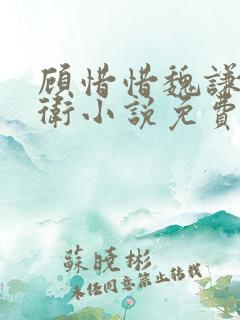 顾惜惜魏謙
衛小說免費
蘇曉彬
未經同意禁止轉載